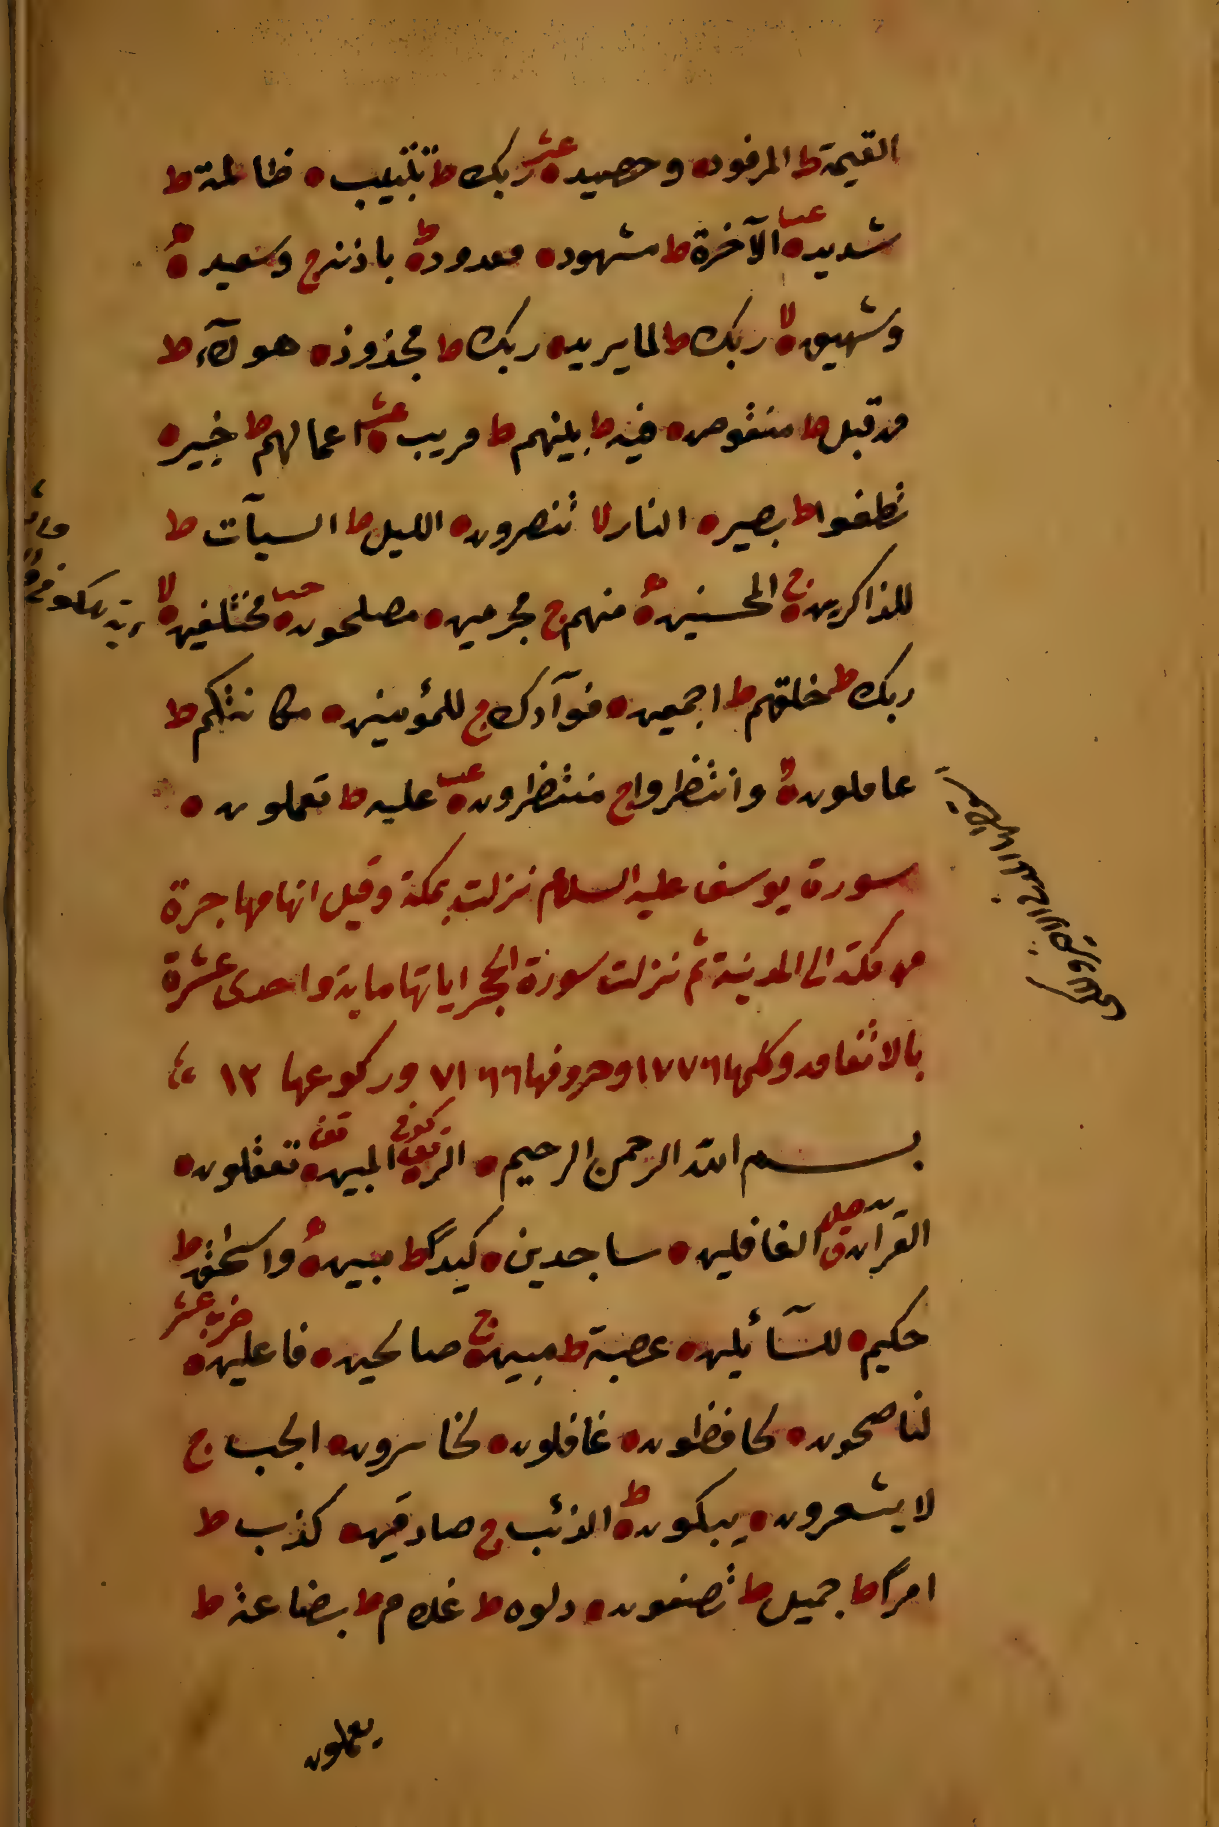 القيمة ط المرفود ه وحصيد ه عشر ربك ط تتبيب ه ظالمة ط
شديد ه عب الآخرة ط مشهود ه معدود ه ط باذنه ج وسعيد ه
وشهيق ه لا ربك ط لما يريد ه ربك ط مجذوذ ه هؤلآء ط
من قبل ط منقوص ه فيه ط بينهم ط مريب ه عشر اعمالهم ط خبير ه
تطغوا ط بصير ه النار لا تنصرون ه الليل ط السيآت ط
للذاكرين ه ج المحسنين ه منهم ج مجرمين ه مصلحون ه عب مختلفين ه لا
ربك ط خلقهم ط اجمعين ه فوآدك ج للمؤمنين ه مكانتكم ط
عاملون ه وانتظروا ج منتظرون ه عب عليه ط تعملون ه
سورة يوسف عليه السلام نزلت بمكة وقيل انها مهاجرة
من مكة الى المدينة ثم نزلت سورة الحجر اياتها ماية واحدى عشرة
بالاتفاق وكلمها ١٧٧٦ وحروفها ٧١٦٦ وركوعها ١٢
بسم الله الرحمن الرحيم ه الر كوفي قف المبين ه قف تعقلون ه
القران ق صلى الغافلين ه ساجدين ه كيدا ط مبين ه واسحق ط
حكيم ه للسآئلين ه عصبة ط مبين ه ج صالحين ه فاعلين ه حزب عشر
لناصحون ه لحافظون ه غافلون ه لخاسرون ه الجب ج
لا يشعرون ه يبكون ه ط الذئب ج صادقين ه كذب ط
امرا ط جميل ط تصفون ه دلوه ط غلام ط بضاعة ط
يعملون